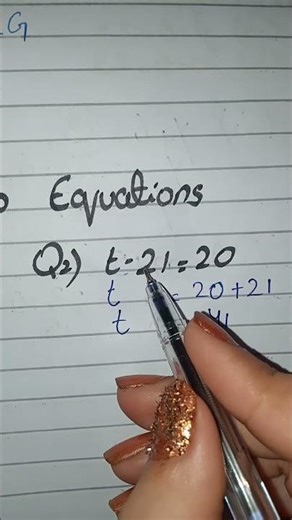 G
Equations
Q2) t - 21 = 20
t = 20 + 21
t